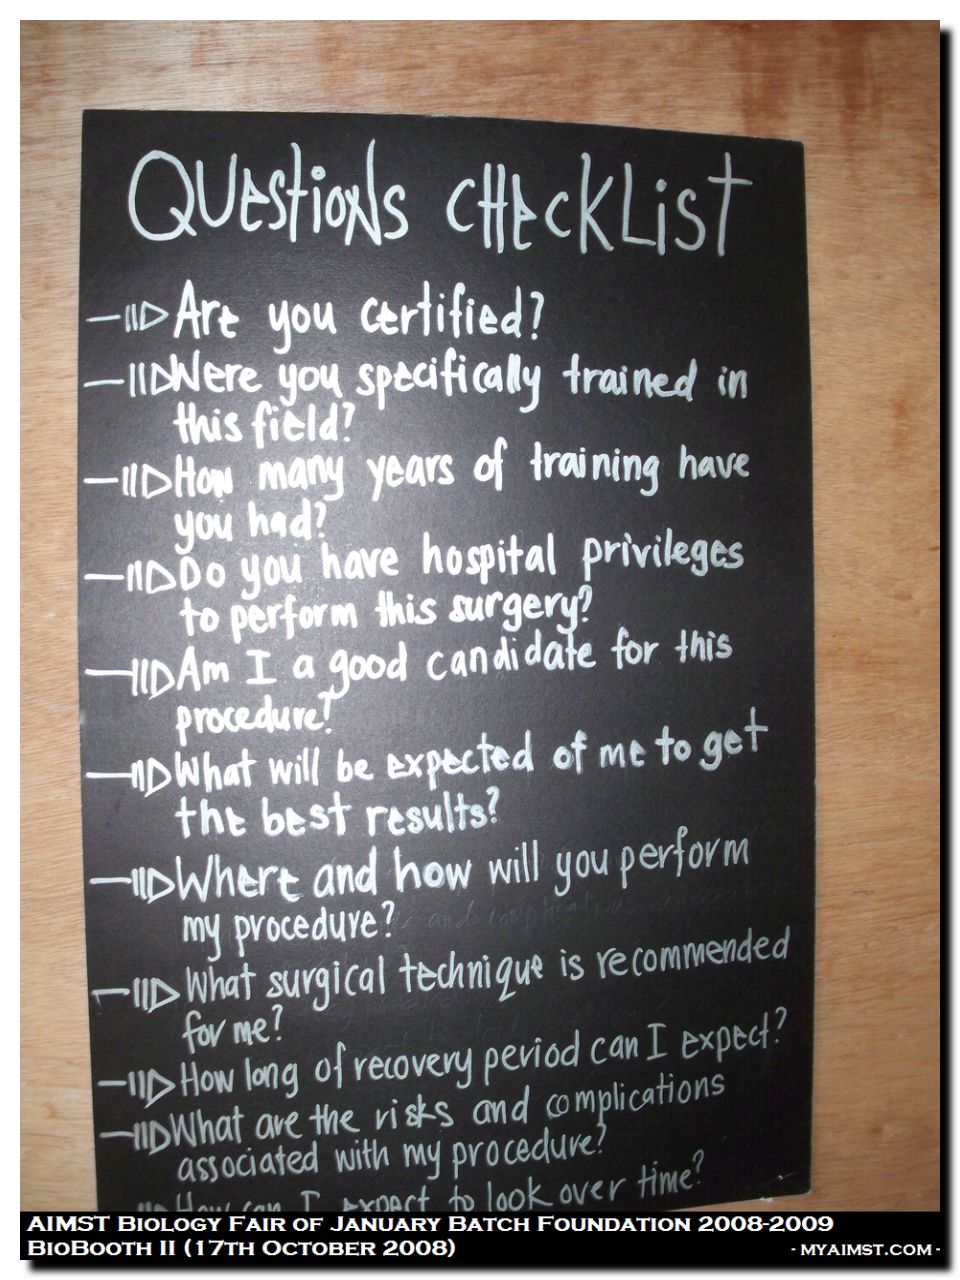 QUEstioNs cHEcKList
Are you certified?
Were you specifically trained in
this field?
How many years of training have
you had?
Do you have hospital privileges
to perform this surgery?
Am I a good candidate for this
procedure?
What will be expected of me to get
the best results?
Where and how will you perform
my procedure?
What surgical technique is recommended
for me?
How long of recovery period can I expect?
What are the risks and complications
associated with my procedure?
How can I expect to look over time?
AIMST Biology Fair of January Batch Foundation 2008-2009
BioBooth II (17th October 2008)
- myaimst.com -